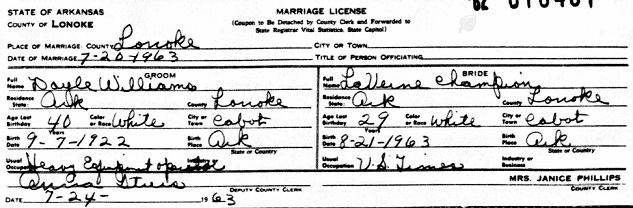 STATE OF ARKANSAS
COUNTY OF LONOKE
MARRIAGE LICENSE
(Coupon to Be Detached by County Clerk and Forwarded to
State Registrar Vital Statistics, State Capitol)
PLACE OF MARRIAGE: COUNTY Lonoke CITY OR TOWN
DATE OF MARRIAGE 7-20-1963 TITLE OF PERSON OFFICIATING
GROOM
Full Name Doyle Williams
Residence State Ark County Lonoke
Age Last Birthday 40 Years Color or Race White City or Town Cabot
Birth Date 9-7-1922 Birth Place Ark
State or Country
Usual Occupation Heavy Equipment operator
BRIDE
Full Name LaVerne Champion
Residence State Ark County Lonoke
Age Last Birthday 29 Years Color or Race White City or Town Cabot
Birth Date 8-21-1963 Birth Place Ark
State or Country
Usual Occupation U.S. Times Industry or Business
DEPUTY COUNTY CLERK
DATE 7-24- 1963
MRS. JANICE PHILLIPS
COUNTY CLERK